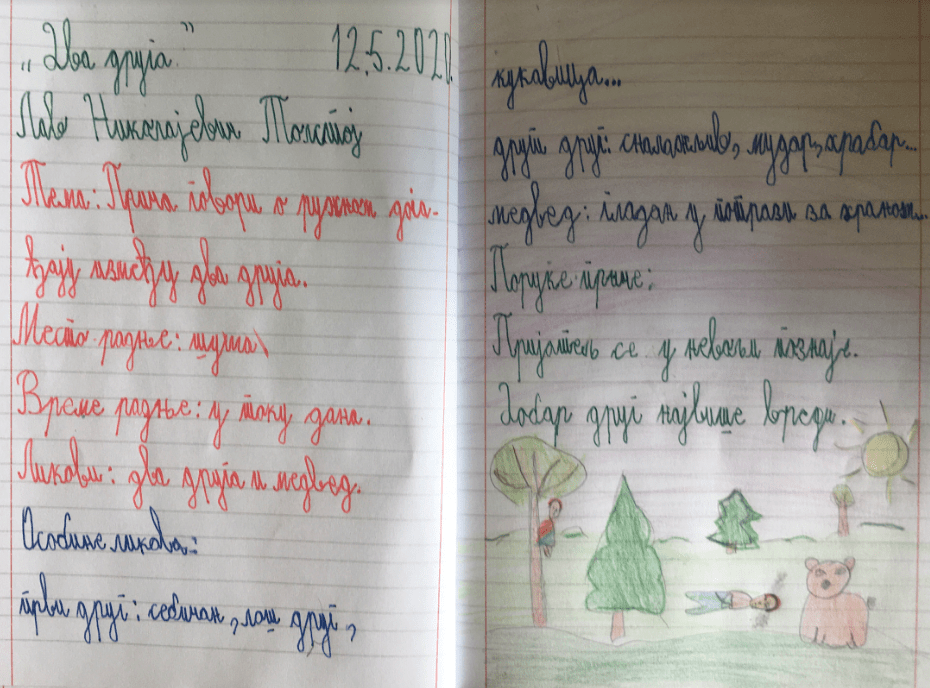 „Два друга”
12.5.2020.
Лав Николајевич Толстој
Тема: Прича говори о ружном дога-
ђају између два друга.
Место радње: шума
Време радње: у току дана.
Ликови: два друга и медвед.
Особине ликова:
први друг: себичан, лош друг,
кукавица...
други друг: сналажљив, мудар, храбар...
медвед: гладан у потрази за храном...
Поруке приче:
Пријатељ се у невољи познаје.
Добар друг највише вреди.